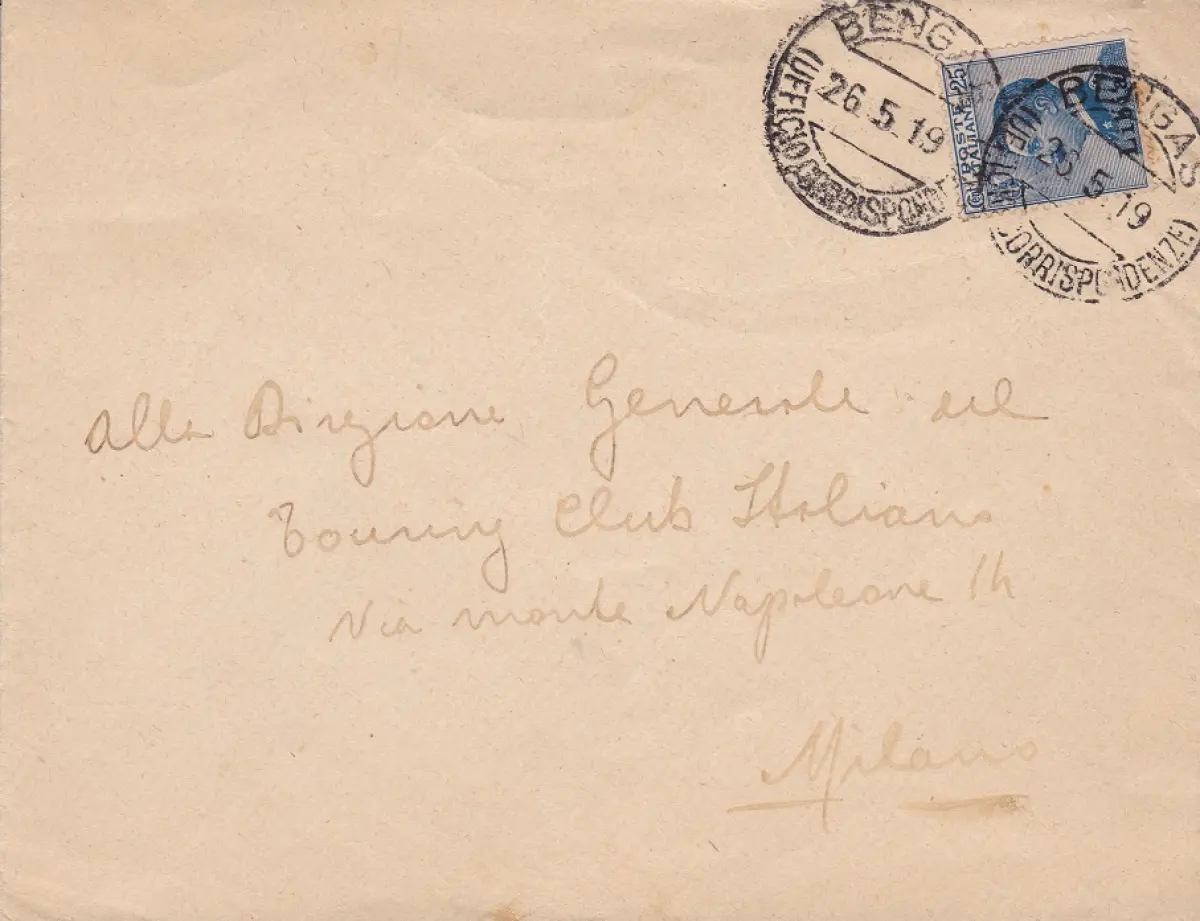 BENGAS
26.5.19
(UFFICIO CORRISPONDE
POSTE ITALIANE
25
BENGAS
26 5 19
CORRISPONDENZE)
Alla Direzione Generale del
Touring Club Italiano
Via monte Napoleone 14
Milano